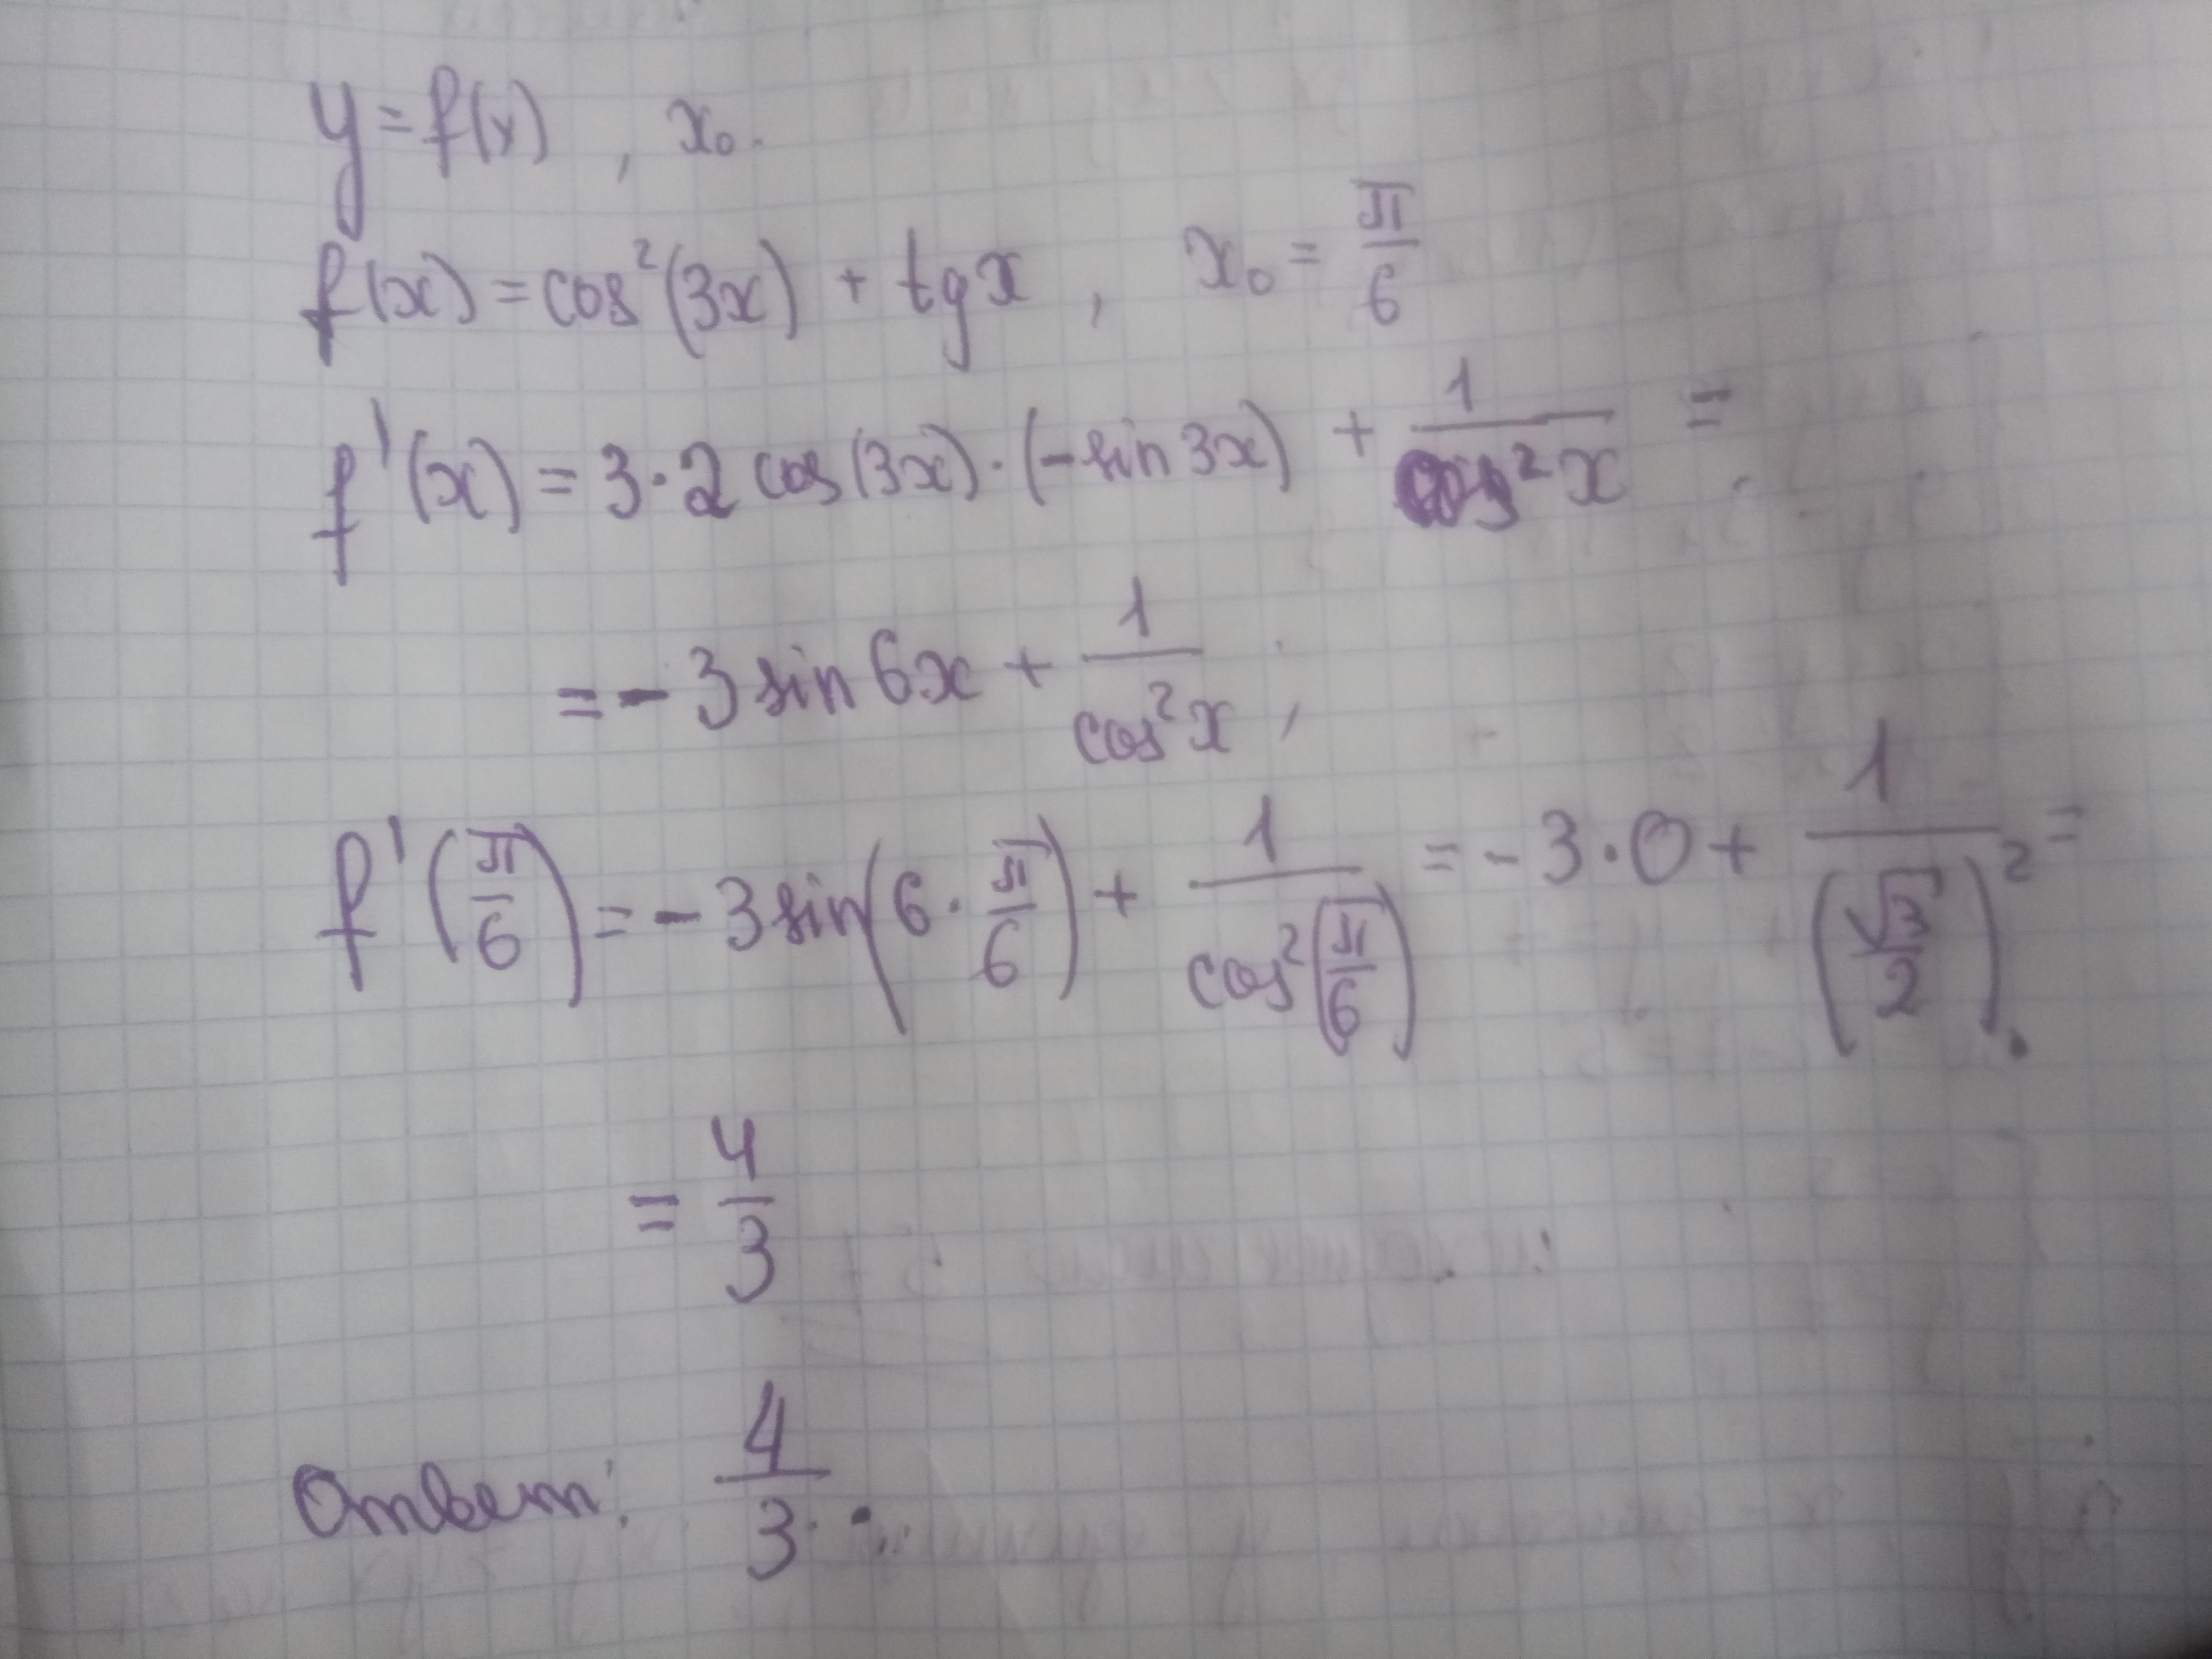 y = f(x) , x₀.
f(x) = cos²(3x) + tg x , x₀ = π/6
f'(x) = 3·2 cos(3x)·(-sin 3x) + 1/cos²x =
= - 3 sin 6x + 1/cos²x ,
f'(π/6) = - 3 sin(6·π/6) + 1/cos²(π/6) = - 3·0 + 1/(√3/2)² =
= 4/3
Ответ: 4/3.